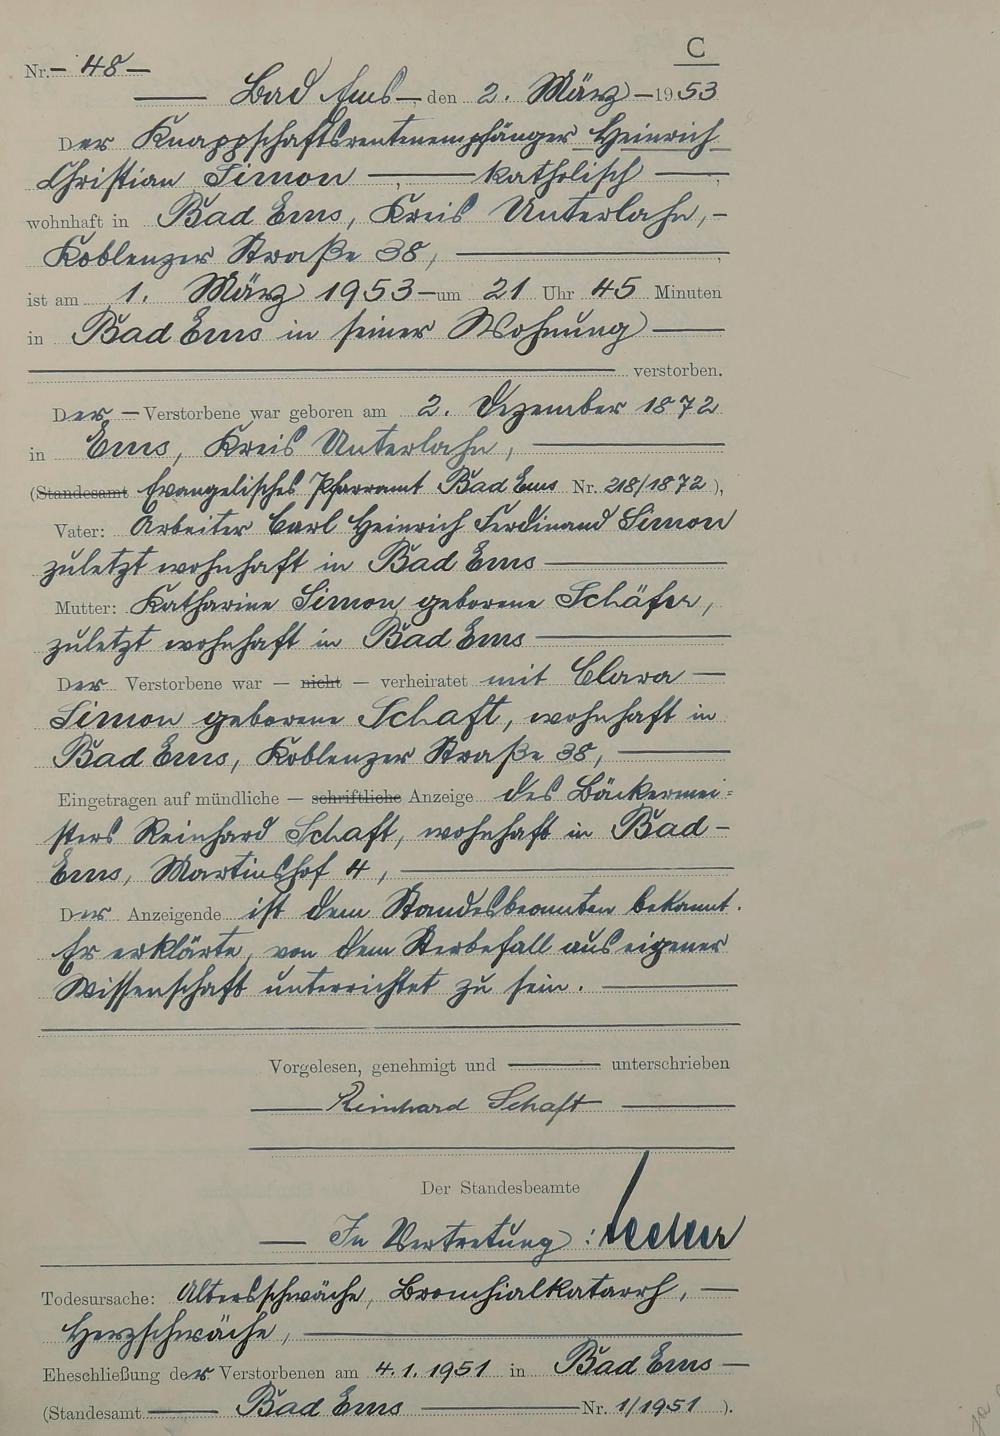 C
Nr. – 48 –
Bad Ems –, den 2. März – 1953
Der Knappschaftsrentenempfänger Heinrich
Christian Simon –,– katholisch –,
wohnhaft in Bad Ems, Kreis Unterlahn, –
Koblenzer Straße 38, –,
ist am 1. März 1953 – um 21 Uhr 45 Minuten
in Bad Ems in seiner Wohnung –
– verstorben.
Der – Verstorbene war geboren am 2. Dezember 1872
in Ems, Kreis Unterlahn, –
(Standesamt Evangelisches Pfarramt Bad Ems Nr. 218/1872),
Vater: Arbeiter Carl Heinrich Ferdinand Simon
zuletzt wohnhaft in Bad Ems –
Mutter: Katharine Simon geborene Schäfer,
zuletzt wohnhaft in Bad Ems –
Der Verstorbene war – nicht – verheiratet mit Clara –
Simon geborene Schaft, wohnhaft in
Bad Ems, Koblenzer Straße 38, –
Eingetragen auf mündliche – schriftliche Anzeige des Bäckermei=
sters Reinhard Schaft, wohnhaft in Bad –
Ems, Martinshof 4, –
Der Anzeigende ist dem Standesbeamten bekannt.
Er erklärte, von dem Sterbefall aus eigener
Wissenschaft unterrichtet zu sein. –
Vorgelesen, genehmigt und – unterschrieben
– Reinhard Schaft –
Der Standesbeamte
– In Vertretung:
Todesursache: Altersschwäche, Bronchialkatarrh, –
Herzschwäche, –
Eheschließung der Verstorbenen am 4.1.1951 in Bad Ems –
(Standesamt – Bad Ems – Nr. 1/1951).